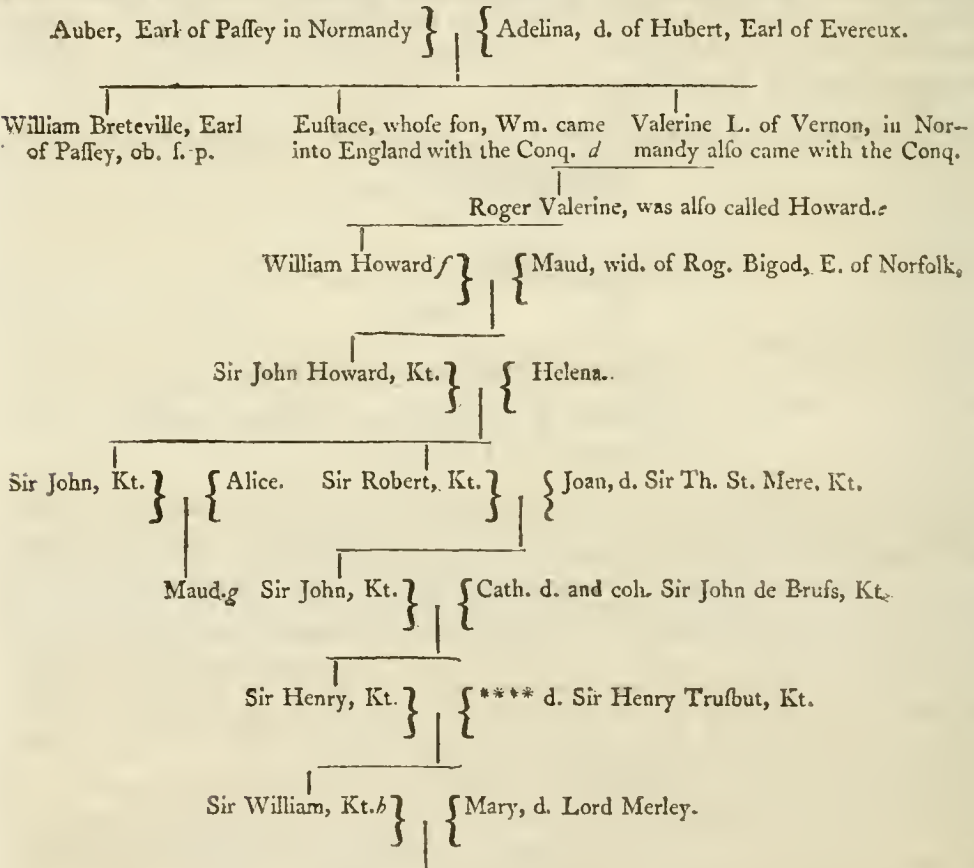 Auber, Earl of Paſſey in Normandy } { Adelina, d. of Hubert, Earl of Evereux.
William Breteville, Earl of Paſſey, ob. ſ. p.
Euſtace, whoſe ſon, Wm. came into England with the Conq. d
Valerine L. of Vernon, in Normandy alſo came with the Conq.
Roger Valerine, was alſo called Howard. e
William Howard f } { Maud, wid. of Rog. Bigod, E. of Norfolk,
Sir John Howard, Kt. } { Helena.
Sir John, Kt. } { Alice. Sir Robert, Kt. } { Joan, d. Sir Th. St. Mere, Kt.
Maud. g Sir John, Kt. } { Cath. d. and coh. Sir John de Bruſs, Kt.
Sir Henry, Kt. } { **** d. Sir Henry Truſbut, Kt.
Sir William, Kt. h } { Mary, d. Lord Merley.